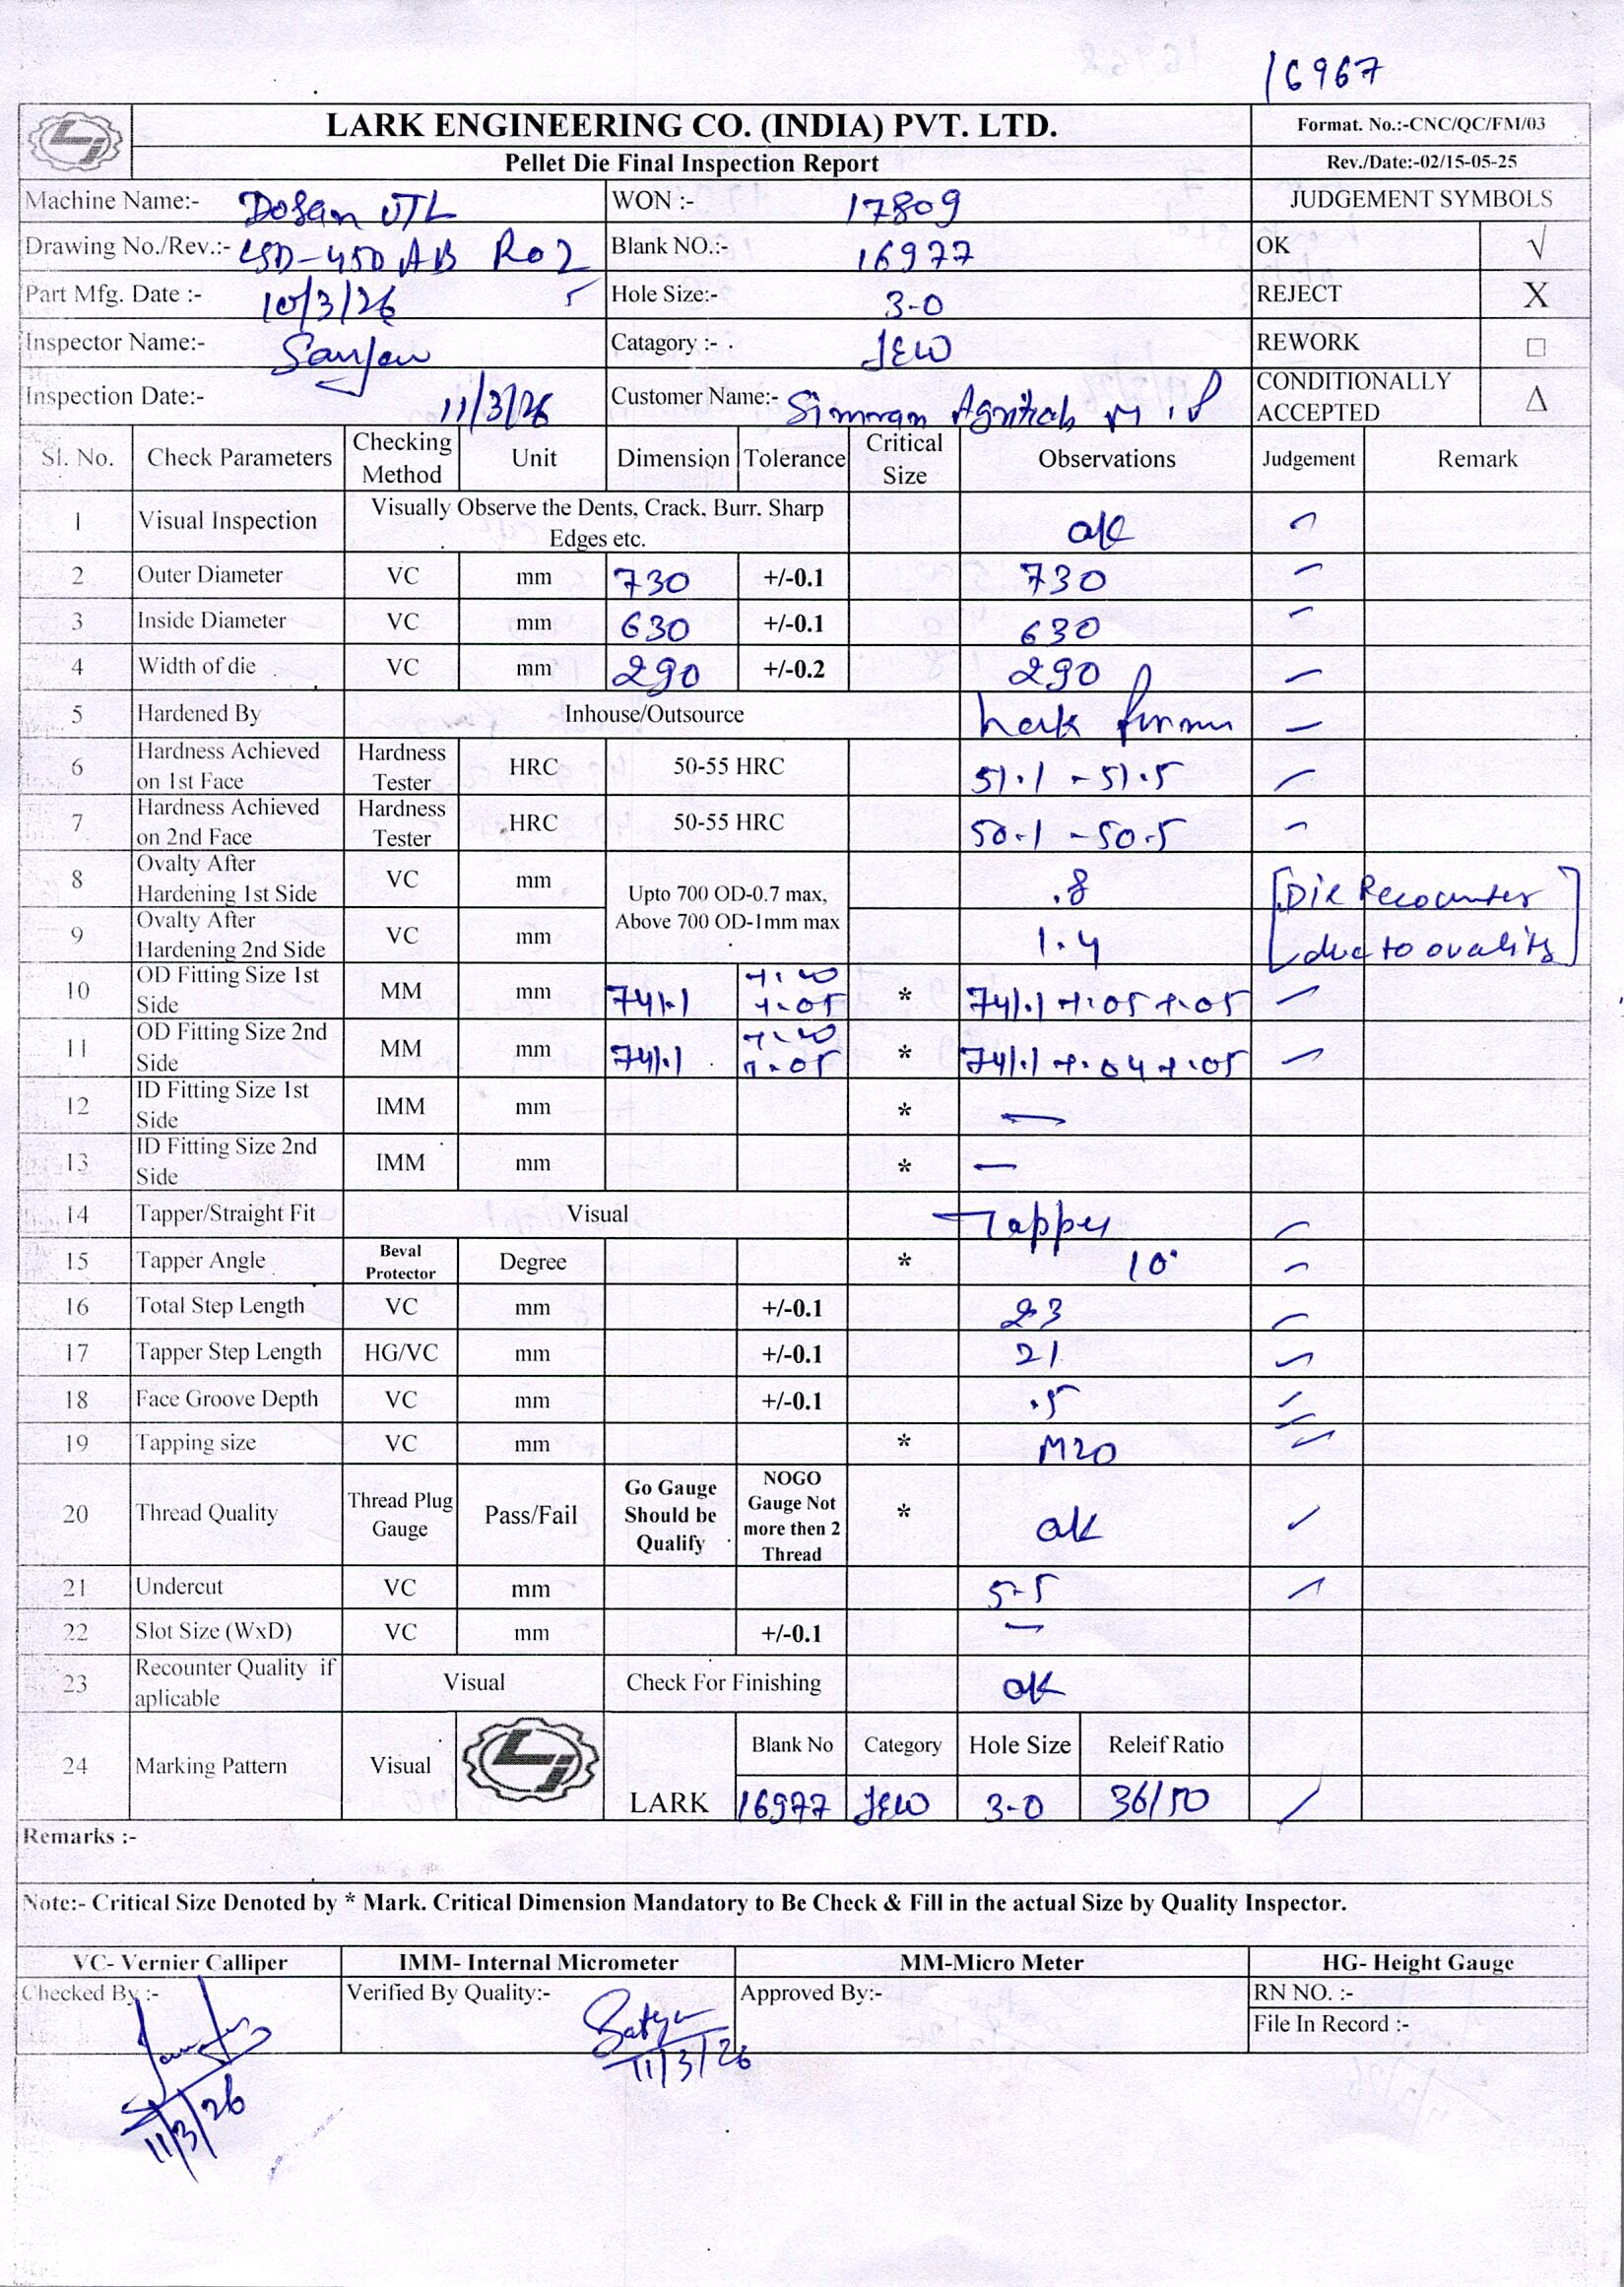 16967
LARK ENGINEERING CO. (INDIA) PVT. LTD.
Format. No.:-CNC/QC/FM/03
Pellet Die Final Inspection Report
Rev./Date:-02/15-05-25
Machine Name:- Dosan VTL WON :- 17809 JUDGEMENT SYMBOLS
Drawing No./Rev.:- LSD-450 AB R02 Blank NO.:- 16977 OK √
Part Mfg. Date :- 10/3/26 Hole Size:- 3-0 REJECT X
Inspector Name:- Catagory :- JEW REWORK □
Inspection Date:- 11/3/26 Customer Name:- Simran CONDITIONALLY ACCEPTED Δ
Sl. No. Check Parameters Checking Method Unit Dimension Tolerance Critical Size Observations Judgement Remark
1 Visual Inspection Visually Observe the Dents, Crack, Burr, Sharp Edges etc. ok
2 Outer Diameter VC mm 730 +/-0.1 730
3 Inside Diameter VC mm 630 +/-0.1 630
4 Width of die VC mm 290 +/-0.2 290
5 Hardened By Inhouse/Outsource Lark
6 Hardness Achieved on 1st Face Hardness Tester HRC 50-55 HRC 51.1 - 51.5
7 Hardness Achieved on 2nd Face Hardness Tester HRC 50-55 HRC 50.1 - 50.5
8 Ovalty After Hardening 1st Side VC mm Upto 700 OD-0.7 max, Above 700 OD-1mm max .8 [Die Recounter
9 Ovalty After Hardening 2nd Side VC mm 1.4 due to ovality]
10 OD Fitting Size 1st Side MM mm 741.1 +.10 +.05 * 741.1 +.05 +.05
11 OD Fitting Size 2nd Side MM mm 741.1 +.10 +.05 * 741.1 +.04 +.05
12 ID Fitting Size 1st Side IMM mm * —
13 ID Fitting Size 2nd Side IMM mm * —
14 Tapper/Straight Fit Visual Tapper
15 Tapper Angle Beval Protector Degree * 10°
16 Total Step Length VC mm +/-0.1 23
17 Tapper Step Length HG/VC mm +/-0.1 21
18 Face Groove Depth VC mm +/-0.1 .5
19 Tapping size VC mm * M20
20 Thread Quality Thread Plug Gauge Pass/Fail Go Gauge Should be Qualify NOGO Gauge Not more then 2 Thread * ok ✓
21 Undercut VC mm 5-5
22 Slot Size (WxD) VC mm +/-0.1 —
23 Recounter Quality if aplicable Visual Check For Finishing ok
24 Marking Pattern Visual LARK Blank No Category Hole Size Releif Ratio
16977 JEW 3-0 36/50
Remarks :-
Note:- Critical Size Denoted by * Mark. Critical Dimension Mandatory to Be Check & Fill in the actual Size by Quality Inspector.
VC- Vernier Calliper IMM- Internal Micrometer MM-Micro Meter HG- Height Gauge
Checked By :- Verified By Quality:- Satya Approved By:- RN NO. :-
File In Record :-
11/3/26
11/3/26